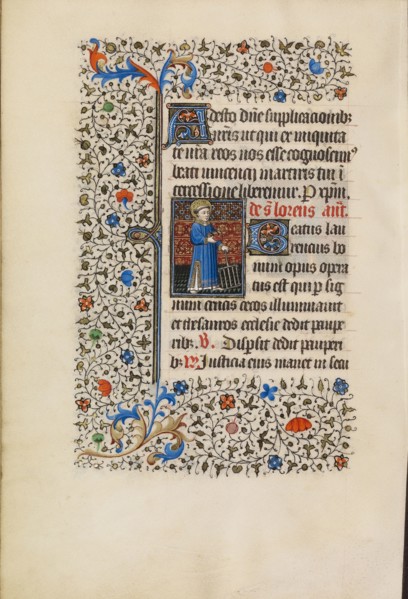 Adesto dn̄e supplicacionibꝫ
nr̄is ut qui ex iniquita
te nr̄a reos nos esse cognoscimꝰ
beati vincencij martiris tui ī
tercessione liberemur. P xp̄m.
de s̄ lorens an̄t.
Beatus lau
rencius bo
num opus opera
tus est qui ꝑ sig
num crucis cecos illuminavit
et thesauros ecclesie dedit paupe
ribꝫ. V. Dispsit dedit pauperi
bꝫ. R Justicia eius manet in secu